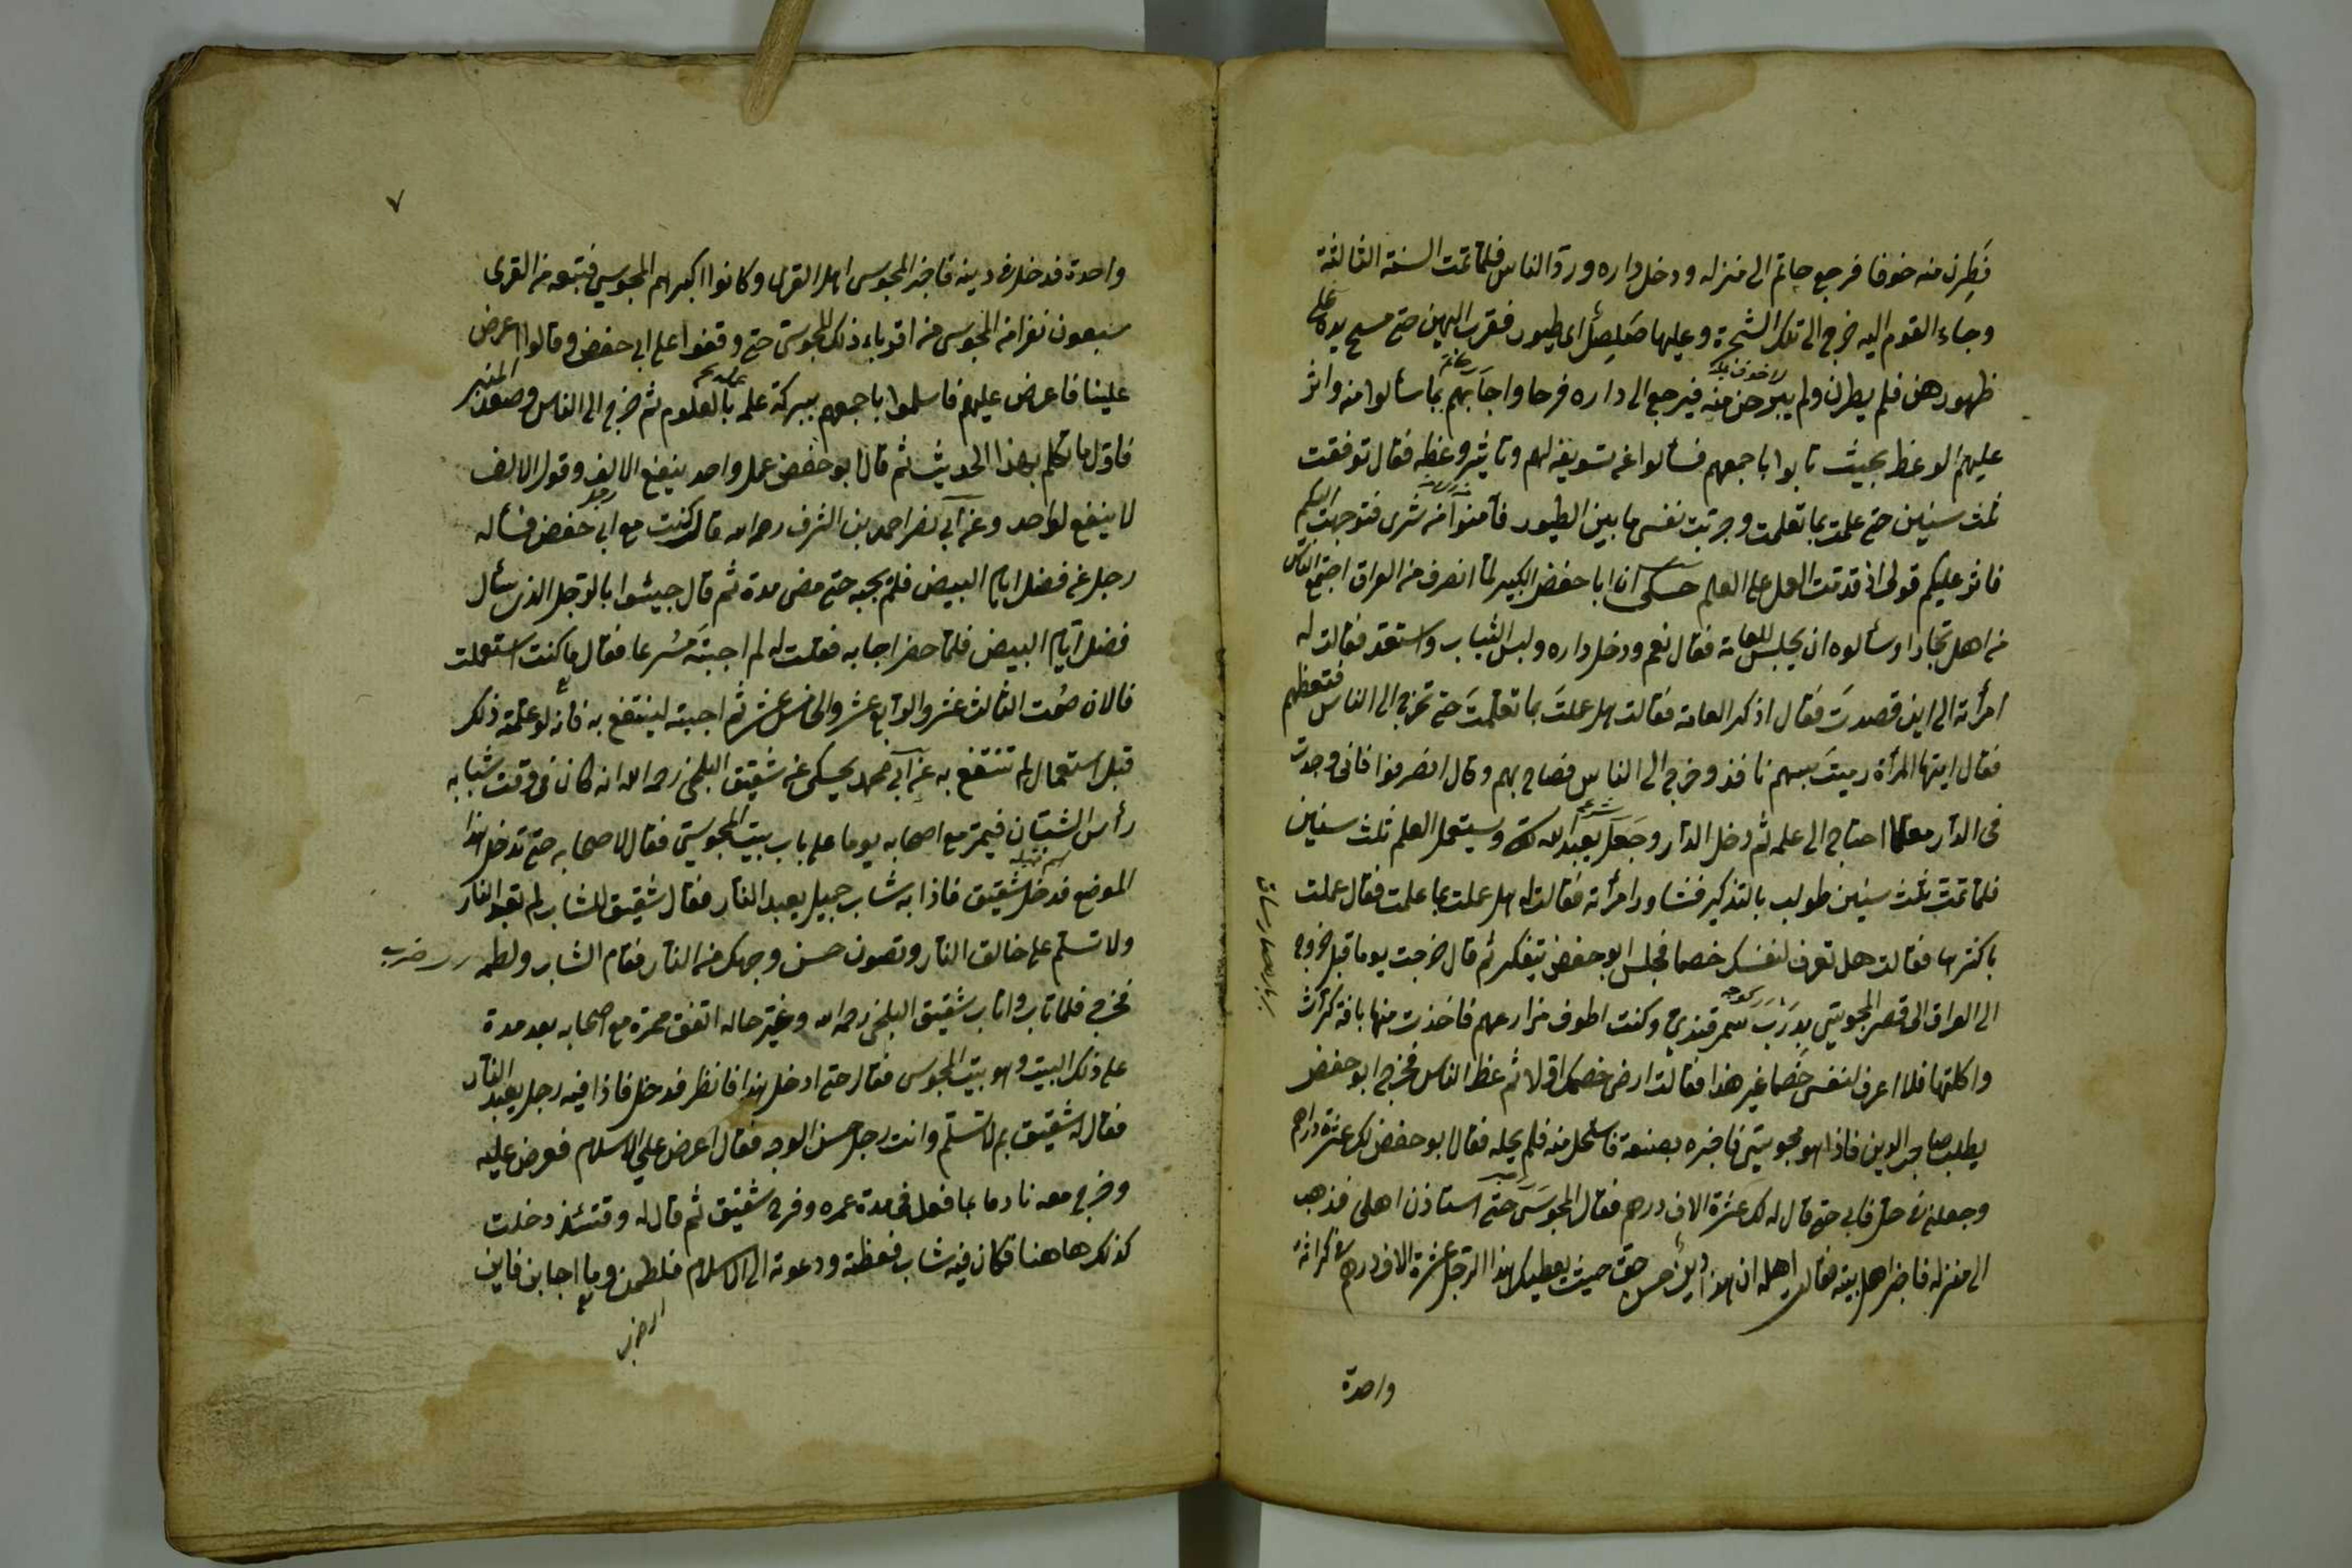 فطرن منه خوفا فرجع حاتم الى منزله ودخل داره ورد الناس فلما تمت السنة الثالثة
وجاء القوم اليه خرج الى تلك الشجرة وعليها صليصل اى طيور فقرب اليهن حتى مسح يده على
ظهورهن فلم يطرن ولم يبرحن منه فيرجع الى داره فرحا واجابهم بما سألوا منه واثر
عليهم الوعظ بحيث تابوا باجمعهم فسألوا عن تسويفه لهم وتأثير وعظه فقال توقفت
ثلث سنين حتى علمت بما تعلمت وجربت نفسى ما بين الطيور فآمنوا من شرى فتوجهت اليكم
فاثر عليكم قولى اذ قدمت العمل على العلم حكى ان ابا حفص الكبير لما انصرف من العراق اجتمع الناس
من اهل بخارا وسألوه ان يجلس للعامة فقال نعم ودخل داره ولبس الثياب واستعد فقالت له
امرأته الى اين قصدت فقال اذكر العامة فقالت هل عملت بما تعلمت حتى تخرج الى الناس فتعظهم
فقال ايتها المرأة رميت بسهم نافذ وخرج الى الناس فصاح بهم وقال انصرفوا فانى وجدت
فى الدار معلما احتاج الى علمه ثم دخل الدار وجعل يعبد الله تع ويستعمل العلم ثلث سنين
فلما تمت ثلث سنين طولب بالتذكير فشاور امرأته فقالت له هل عملت بما علمت فقال عملت
باكثرها فقالت هل تعرف لنفسك خصما فجلس ابو حفص يتفكر ثم قال خرجت يوما قبل خروجى
الى العراق الى قصر المجوسى بدرب سمرقندى وكنت اطوف مزارعهم فاخذت منها باقة كراث
واكلتها فلا اعرف لنفسى خصما غير هذا فقالت ارض خصمك اولا ثم عظ الناس فخرج ابو حفص
يطلب صاحب الدين فاذا هو مجوسى فاخبره بصنعه فاستحل منه فلم يحله فقال ابو حفص لك عشرة دراهم
وجعلنى فى حل فابى حتى قال له لك عشرة الاف درهم فقال المجوسى حتى استاذن اهلى فذهب
الى منزله فاخبر اهل بيته فقالت اهله ان هذا دين حسن حق حيث يعطيك هذا الرجل عشرة الاف درهم فى كراثة
واحدة
٧
واحدة فدخل فى دينه فاخبر المجوسى اهل القرى وكانوا اكبرهم المجوسى فتبعه من القرى
سبعون نفرا من المجوس من اقرباء ذلك المجوسى حتى وقفوا على ابى حفص وقالوا اعرض
علينا فاعرض عليهم فاسلموا باجمعهم ببركة عمله بالعلوم ثم خرج الى الناس وصعد المنبر
فاول ما تكلم بهذا الحديث ثم قال ابو حفص عمل واحد ينفع الالف وقول الالف
لا ينفع لواحد وعن ابى نصر احمد بن الشرف رحمه الله قال كنت مع ابى حفص فسأله
رجل عن فضل ايام البيض فلم يجبه حتى مضى مدة ثم قال جيئوا بالرجل الذى سأل
فضل ايام البيض فلما حضر اجابه فقلت له لم اجبته مسرعا فقال ما كنت استعملت
فالان صمت الثالث عشر والرابع عشر والخامس عشر ثم اجبته لينتفع به فانه لو علمته ذلك
قبل استعمال لم تنتفع به عن ابى محمد يحكى عن شقيق البلخى رحمه الله انه كان فى وقت شبابه
رأس الشبان فيمر مع اصحابه يوما على باب بيت المجوسى فقال لاصحابه حتى تدخل هذا
الموضع فدخل شقيق فاذا به شاب جميل يعبد النار فقال شقيق للشاب لم تعبد النار
ولا تسلم على خالق النار وتصون حسن وجهك من النار فقام الشاب ولطمه
فخرج فلما تاب واناب شقيق البلخى رحمه الله وغير حاله اتفق ممره مع اصحابه بعد مدة
على ذلك البيت وهو بيت المجوسى فقال حتى ادخل هذا فانظر فدخل فاذا فيه رجل يعبد النار
فقال له شقيق بم لا تسلم وانت رجل حسن الوجه فقال اعرض على الاسلام فعرض عليه
وخرج معه نادما بما فعل فى مدة عمره وفرح شقيق ثم قال له وقتئذ دخلت
كذلك هاهنا فكان فيه شاب فوعظته ودعوته الى الاسلام فلطمنى وما اجابنى فاين